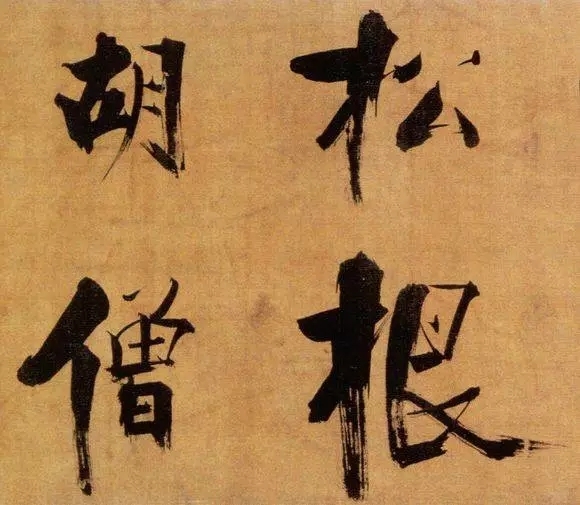 松根
胡僧